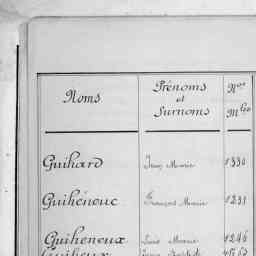 Noms Prénoms et Surnoms Nos Mle
Guihard Jean Marie 1330
Guihéneuc François Marie 1231
Guiheneux Louis Marie 1246
Guiheux